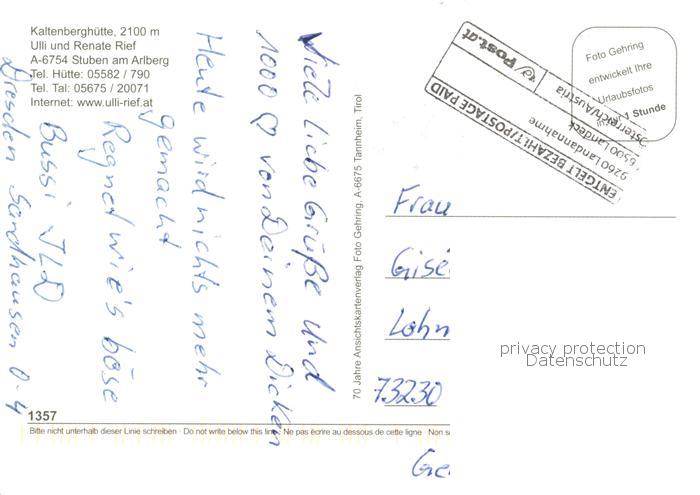 Kaltenberghütte, 2100 m
Ulli und Renate Rief
A-6754 Stuben am Arlberg
Tel. Hütte: 05582 / 790
Tel. Tal: 05675 / 20071
Internet: www.ulli-rief.at
Viele liebe Grüße und
1000 ♡ von Deinem Dicken
Heute wird nichts mehr
gemacht
Regnet wie's böse
Bussi
Dresden Sandhausen 0:4
1357
Bitte nicht unterhalb dieser Linie schreiben · Do not write below this line · Ne pas écrire au dessous de cette ligne · Non s
70 Jahre Ansichtskartenverlag Foto Gehring, A-6675 Tannheim, Tirol
Post.at
Österreich/Austria
6500 Landeck
9260 Landannahme
ENTGELT BEZAHLT/POSTAGE PAID
Foto Gehring
entwickelt Ihre
Urlaubsfotos
in nur 1 Stunde
Frau
Gise
Lohn
73230
Ge
privacy protection
Datenschutz